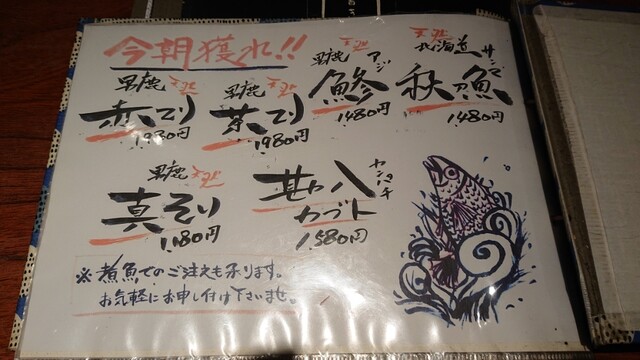 今朝獲れ!!
男鹿 天然
赤てり
1,980円
男鹿 天然
茶てり
1,980円
男鹿 天然
アジ
鯵
1,480円
天然
北海道
サンマ
秋刀魚
1,480円
男鹿 天然
真そり
1,180円
カンパチ
勘八
カブト
1,580円
※煮魚でのご注文も承ります。
お気軽にお申し付け下さいませ。